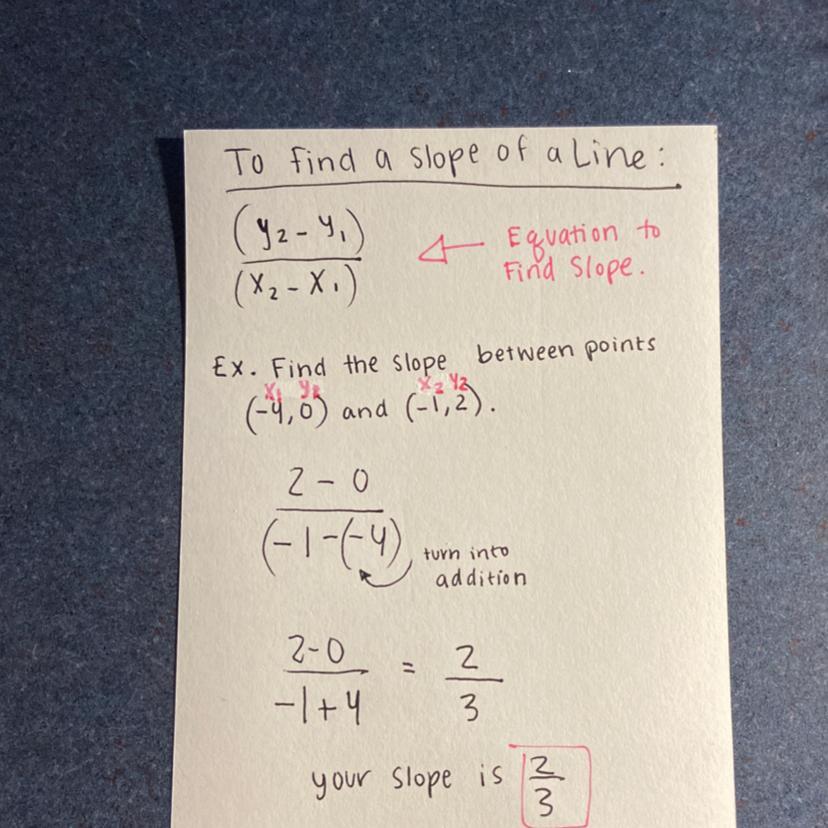 To find a slope of a Line:
(y₂ - y₁)
(x₂ - x₁)
Equation to
Find Slope.
Ex. Find the slope between points
x₁ x₂ y₂
(-4,0) and (-1,2).
2 - 0
(-1-(-4)
turn into
addition
2-0 = 2
-1+4 3
your slope is 2
3